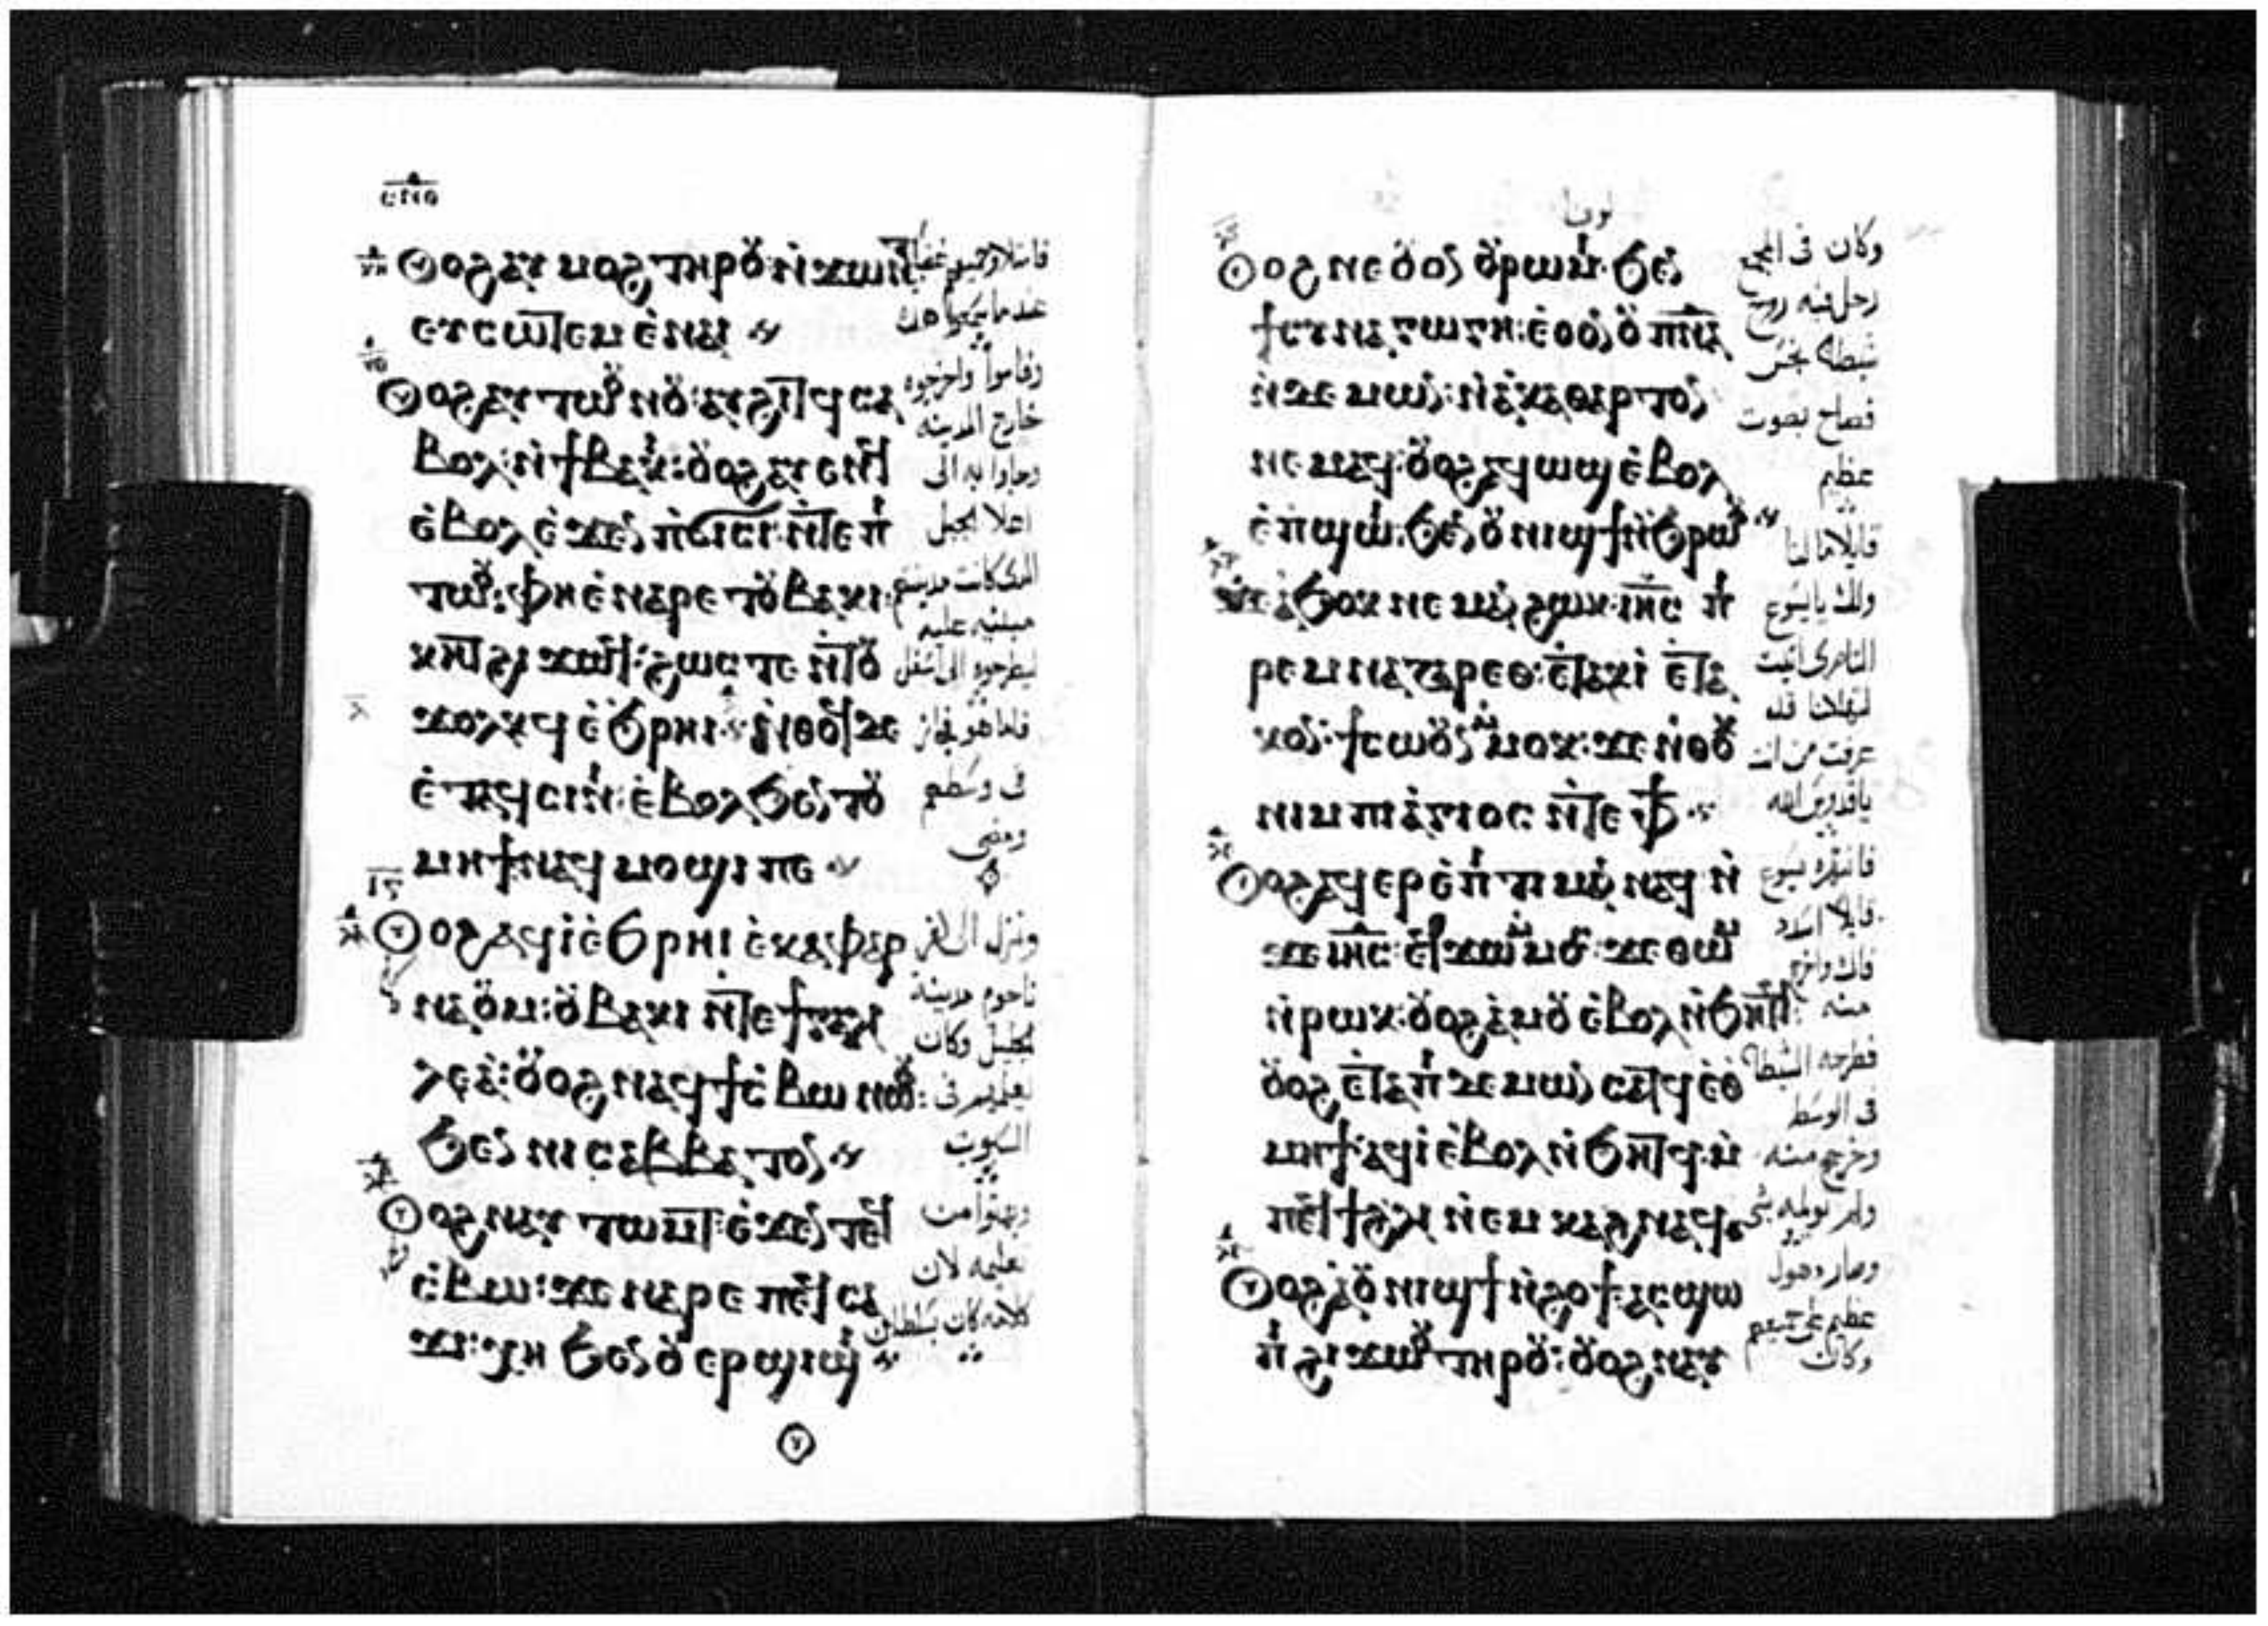 ⲥⲛⲑ
Ⲟⲩⲟϩ ⲁⲩⲙⲟϩ ⲧⲏⲣⲟⲩ ⲛ̀ϫⲱⲛⲧ
ⲉⲩⲥⲱⲧⲉⲙ ⲉ̀ⲛⲁⲓ
Ⲟⲩⲟϩ ⲁⲩⲧⲱⲟⲩⲛⲟⲩ: ⲁⲩϩⲓⲧϥ ⲥⲁ
ⲃⲟⲗ: ⲛ̀ϯⲃⲁⲕⲓ: ⲟⲩⲟϩ ⲁⲩⲉⲛϥ
ⲉ̀ⲃⲟⲗ ⲉ̀ϫⲉⲛ ⲡ̀ϭⲓⲥⲓ ⲛ̀ⲧⲉ ⲡⲓ
ⲧⲱⲟⲩ: ⲫⲏ ⲉ̀ⲛⲁⲣⲉ ⲧⲟⲩⲃⲁⲕⲓ
ⲕⲏⲧ ϩⲓϫⲱϥ: ϩⲱⲥⲧⲉ ⲛ̀ⲧⲟⲩ
ϫⲟⲗⲕϥ ⲉ̀ϧⲣⲏⲓ: ⲛ̀ⲑⲟϥ ⲇⲉ
ⲉ̀ⲧⲁϥⲥⲓⲛⲓ: ⲉ̀ⲃⲟⲗ ϧⲉⲛ ⲧⲟⲩ
ⲙⲏϯ ⲛⲁϥⲙⲟϣⲓ ⲡⲉ
Ⲟⲩⲟϩ ⲁϥⲓ̀ ⲉ̀ϧⲣⲏⲓ ⲉ̀ⲕⲁⲫⲁⲣ
ⲛⲁⲟⲩⲙ: ⲟⲩⲃⲁⲕⲓ ⲛ̀ⲧⲉ ϯⲅⲁⲗⲓ
ⲗⲉⲁ̀: ⲟⲩⲟϩ ⲛⲁϥϯⲥ̀ⲃⲱ ⲛⲱⲟⲩ:
ϧⲉⲛ ⲛⲓⲥⲁⲃⲃⲁⲧⲟⲛ
Ⲟⲩⲟϩ ⲛⲁⲩⲧⲱⲙⲧ: ⲉ̀ϫⲉⲛ ⲧⲉϥ
ⲥ̀ⲃⲱ: ϫⲉ ⲛⲁⲣⲉ ⲡⲉϥⲥⲁ
ϫⲓ: ⲭⲏ ϧⲉⲛ ⲟⲩⲉⲣϣⲓϣⲓ
فامتلاوا جميعهم غضبا
عندما سمعوا هذا
وقاموا واخرجوه
خارج المدينه
وجاوا به الى
اعلا الجبل
مبنيه عليه
ليطرحوه الى اسفل
فاما هو فجاز
فى وسطهم
ومضى
ناحوم مدينة
الجليل وكان
يعلمهم فى
السبوت
وبهتوا من
تعليمه لان
كلامه كان بسلطان
لوقا
Ⲟⲩⲟϩ ⲛⲉ ⲟⲩⲟⲛ ⲟⲩⲣⲱⲙⲓ ϧⲉⲛ
ϯⲥⲩⲛⲁⲅⲱⲅⲏ: ⲉ̀ⲟⲩⲟⲛ ⲟⲩⲡ̅ⲛ̅ⲁ̅
ⲛ̀ⲇⲉⲙⲱⲛ: ⲛ̀ⲁ̀ⲕⲁⲑⲁⲣⲧⲟⲛ
ⲛⲉⲙⲁϥ: ⲟⲩⲟϩ ⲁϥⲱϣ ⲉ̀ⲃⲟⲗ
ⲉ̀ⲡϣⲱⲓ: ϧⲉⲛ ⲟⲩⲛⲓϣϯ ⲛ̀ϧⲣⲱⲟⲩ
ϫⲉ ⲁ̀ϧⲟⲕ ⲛⲉⲙⲁⲛ ϩⲱⲕ ⲓⲏ̅ⲥ̅ ⲡⲓ
ⲣⲉⲙⲛⲁⲍⲁⲣⲉⲑ: ⲉ̀ⲧⲁⲕⲓ̀ ⲉ̀ⲧⲁ
ⲕⲟⲛ: ϯⲥⲱⲟⲩⲛ ⲙ̀ⲙⲟⲕ: ϫⲉ ⲛ̀ⲑⲟⲕ
ⲛⲓⲙ ⲡⲓⲁ̀ⲅⲓⲟⲥ ⲛ̀ⲧⲉ ⲫϯ
Ⲟⲩⲟϩ ⲁϥⲉⲣⲉ̀ⲡⲓⲧⲓⲙⲁⲛ ⲛⲁϥ ⲛ̀
ϫⲉ ⲓⲏ̅ⲥ̅: ⲉϥϫⲱ ⲙ̀ⲙⲟⲥ: ϫⲉ ⲑⲱⲙ
ⲛ̀ⲣⲱⲕ: ⲟⲩⲟϩ ⲁ̀ⲙⲟⲩ ⲉ̀ⲃⲟⲗ ⲛ̀ϧⲏⲧϥ
ⲟⲩⲟϩ ⲉ̀ⲧⲁ ⲡⲓⲇⲉⲙⲱⲛ ⲥⲁⲧϥ ⲉ̀ⲑ
ⲙⲏϯ: ⲁϥⲓ̀ ⲉ̀ⲃⲟⲗ ⲛ̀ϧⲏⲧϥ: ⲙ̀
ⲡⲉϥϯϩⲗⲓ ⲛ̀ⲉⲙⲕⲁϩ ⲛⲁϥ
Ⲟⲩⲟϩ ⲟⲩⲛⲓϣϯ ⲛ̀ϩⲟϯ ⲁⲥϣⲱ
ⲡⲓ ϩⲓϫⲱⲟⲩ ⲧⲏⲣⲟⲩ: ⲟⲩⲟϩ ⲛⲁⲩ
وكان فى المجمع
رجل فيه روح
شيطان نجس
فصاح بصوت
عظيم
قايلا ما لنا
ولك يا يسوع
الناصرى اتيت
لتهلكنا قد
عرفت من انت
ياقدوس الله
فانتهره يسوع
قايلا اسدد
فاك واخرج
منه
فطرحه الشيطان
فى الوسط
وخرج منه
ولم يولمه شى
وصار هول
عظيم على جميعهم
وكان